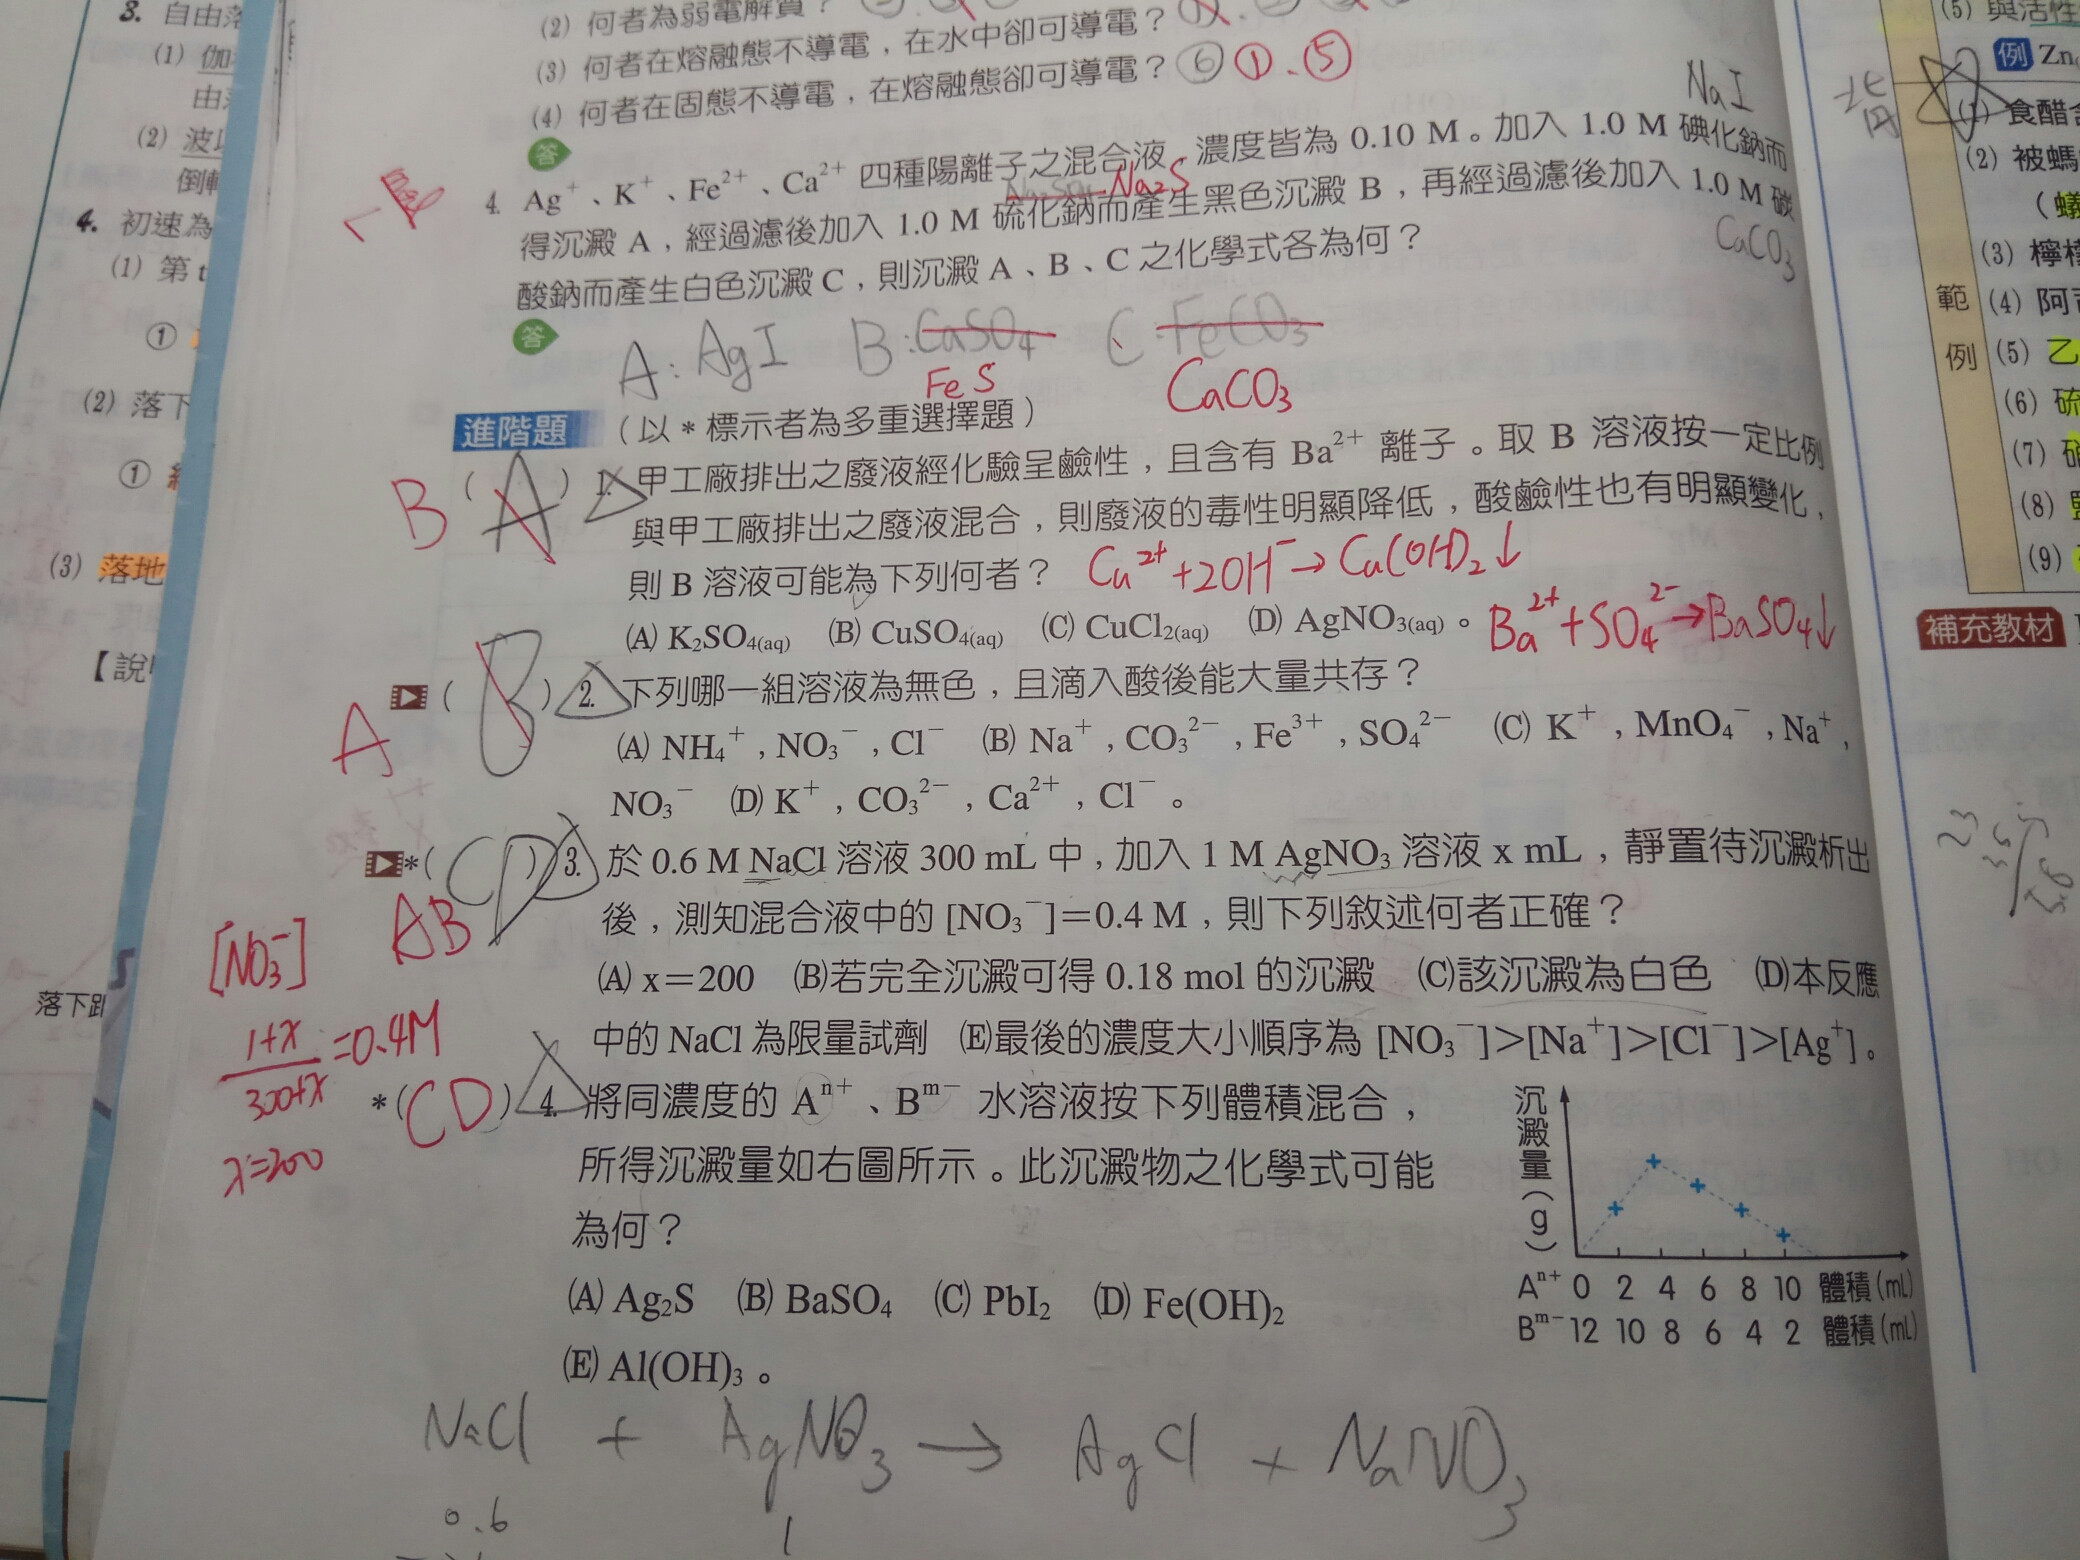 3. 自由落
(1) 伽
由
(2) 波
倒
4. 初速為
(1) 第 t
①
(2) 落下
①
(3) 落地
【說
落下距
(2) 何者為弱電解質？
(3) 何者在熔融態不導電，在水中卻可導電？①
(4) 何者在固態不導電，在熔融態卻可導電？⑥ ①、⑤
答
NaI
4. Ag⁺、K⁺、Fe²⁺、Ca²⁺ 四種陽離子之混合液，濃度皆為 0.10 M。加入 1.0 M 碘化鈉而
Na₂S
得沉澱 A，經過濾後加入 1.0 M 硫化鈉而產生黑色沉澱 B，再經過濾後加入 1.0 M 碳
CaCO₃
酸鈉而產生白色沉澱 C，則沉澱 A、B、C 之化學式各為何？
答
A: AgI B: CaSO₄ C: FeCO₃
FeS CaCO₃
進階題（以 * 標示者為多重選擇題）
B ( A ) 1. 甲工廠排出之廢液經化驗呈鹼性，且含有 Ba²⁺ 離子。取 B 溶液按一定比例
與甲工廠排出之廢液混合，則廢液的毒性明顯降低，酸鹼性也有明顯變化，
則 B 溶液可能為下列何者？ Cu²⁺+2OH⁻→Cu(OH)₂↓
(A) K₂SO₄(aq) (B) CuSO₄(aq) (C) CuCl₂(aq) (D) AgNO₃(aq)。 Ba²⁺+SO₄²⁻→BaSO₄↓
A ( B ) 2. 下列哪一組溶液為無色，且滴入酸後能大量共存？
(A) NH₄⁺，NO₃⁻，Cl⁻ (B) Na⁺，CO₃²⁻，Fe³⁺，SO₄²⁻ (C) K⁺，MnO₄⁻，Na⁺，
NO₃⁻ (D) K⁺，CO₃²⁻，Ca²⁺，Cl⁻。
*( CD ) 3. 於 0.6 M NaCl 溶液 300 mL 中，加入 1 M AgNO₃ 溶液 x mL，靜置待沉澱析出
AB
後，測知混合液中的 [NO₃⁻]＝0.4 M，則下列敘述何者正確？
(A) x＝200 (B)若完全沉澱可得 0.18 mol 的沉澱 (C)該沉澱為白色 (D)本反應
中的 NaCl 為限量試劑 (E)最後的濃度大小順序為 [NO₃⁻]>[Na⁺]>[Cl⁻]>[Ag⁺]。
[NO₃⁻]
1+x
=0.4M
300+x
x=200
*( CD ) 4. 將同濃度的 Aⁿ⁺、Bᵐ⁻ 水溶液按下列體積混合，
所得沉澱量如右圖所示。此沉澱物之化學式可能
為何？
(A) Ag₂S (B) BaSO₄ (C) PbI₂ (D) Fe(OH)₂
(E) Al(OH)₃。
沉澱量(g)
Aⁿ⁺ 0 2 4 6 8 10 體積(mL)
Bᵐ⁻ 12 10 8 6 4 2 體積(mL)
NaCl + AgNO₃ → AgCl + NaNO₃
0.6 1
(5) 與活性
例 Zn
背
(1) 食醋
(2) 被螞
(蟻
(3) 檸檬
範 (4) 阿
例 (5) 乙
(6) 硫
(7)
(8)
(9)
補充教材